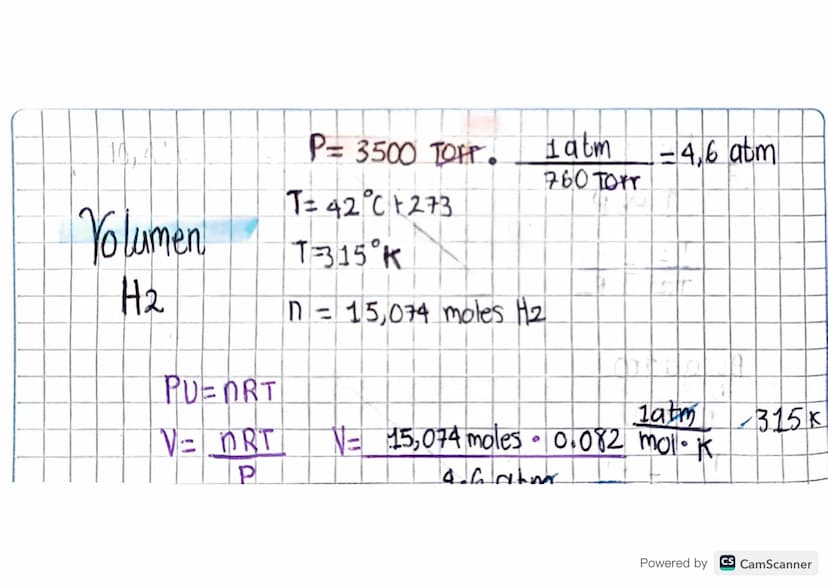 P= 3500 Torr . 1atm / 760 Torr = 4,6 atm
T= 42°C + 273
Volumen
T=315°K
H2
n = 15,074 moles H2
PV=nRT
V= nRT / P
V= 15,074 moles • 0.082 1atm / mol• K 315 K
4.6 atm
Powered by CS CamScanner